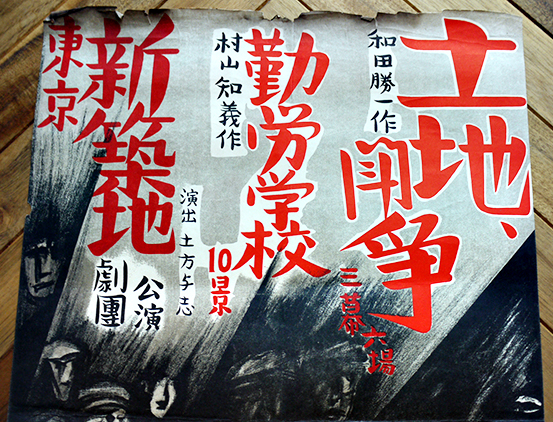 土地、
闘争
三幕六場
和田勝一作
勤労学校
10景
村山知義作
演出 土方与志
東京
新築地
劇團
公演